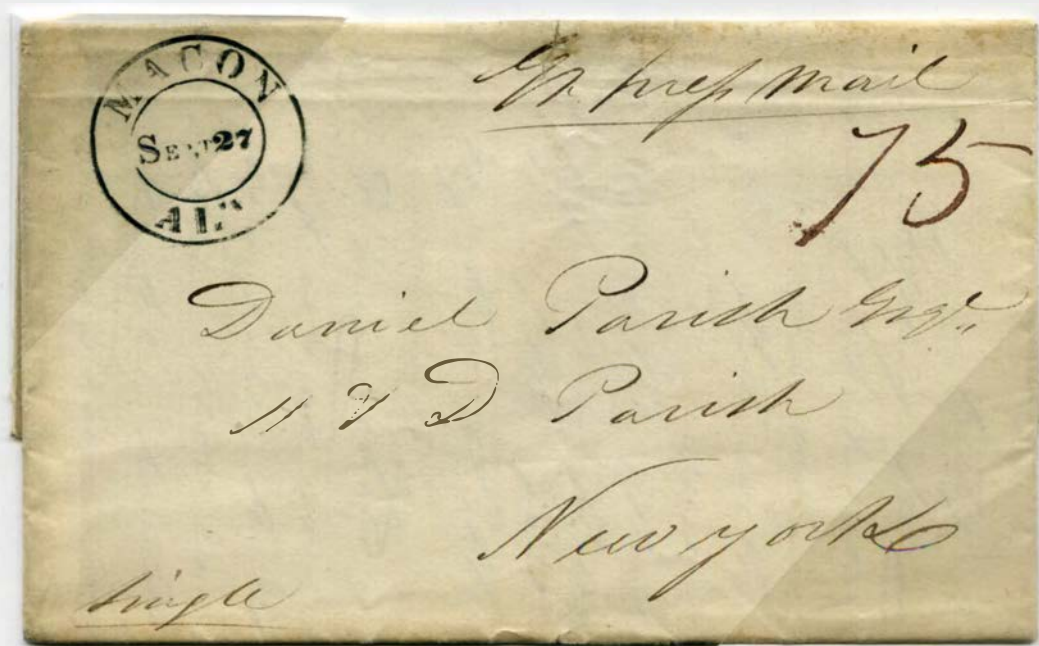 MACON
SEPT 27
ALA
Express Mail
75
Daniel Parish Esqr.
H & D Parish
New York
Single